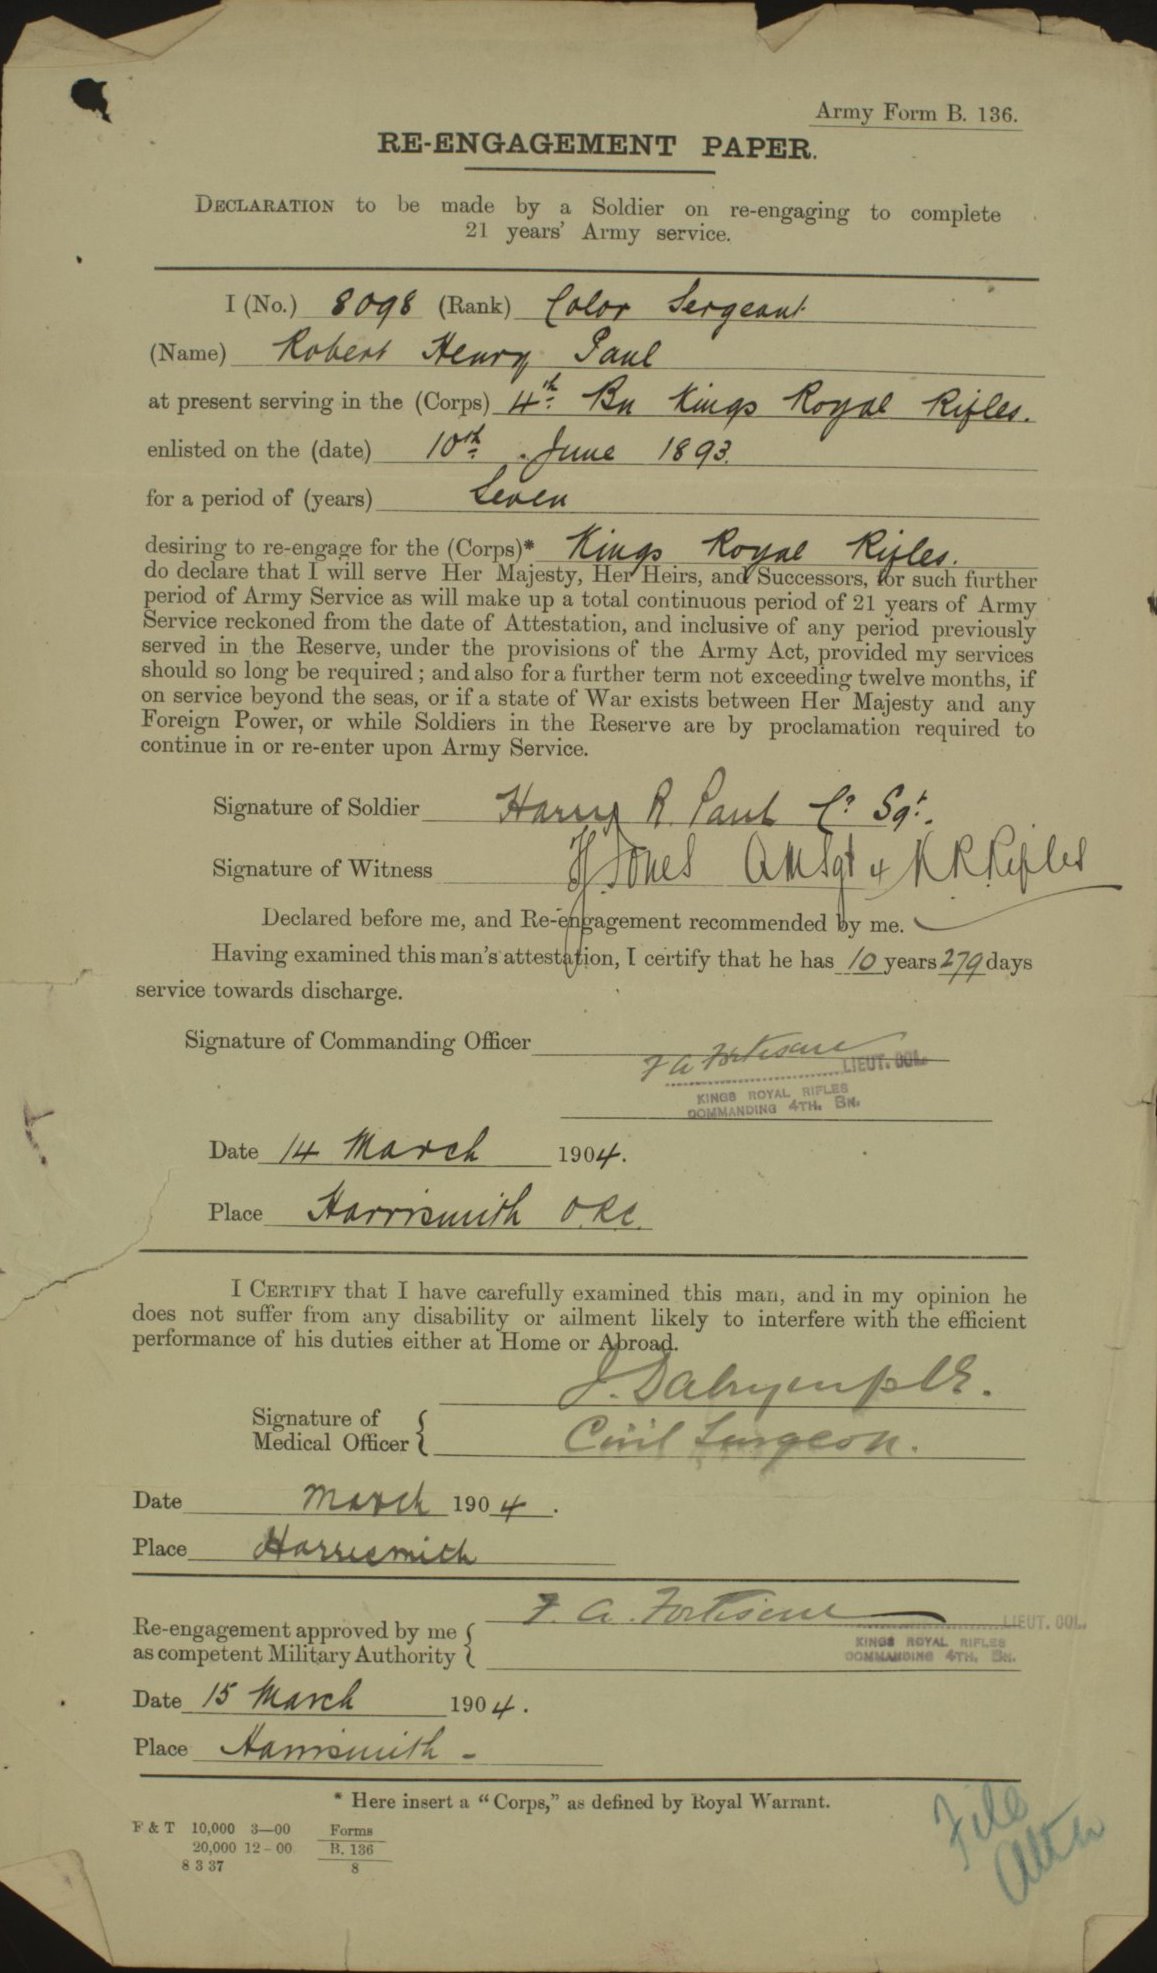 Army Form B. 136.
RE-ENGAGEMENT PAPER.
DECLARATION to be made by a Soldier on re-engaging to complete
21 years' Army service.
I (No.) 8098 (Rank) Color Sergeant
(Name) Robert Henry Paul
at present serving in the (Corps) 4th Bn Kings Royal Rifles.
enlisted on the (date) 10th June 1893.
for a period of (years) Seven
desiring to re-engage for the (Corps)* Kings Royal Rifles.
do declare that I will serve Her Majesty, Her Heirs, and Successors, for such further
period of Army Service as will make up a total continuous period of 21 years of Army
Service reckoned from the date of Attestation, and inclusive of any period previously
served in the Reserve, under the provisions of the Army Act, provided my services
should so long be required; and also for a further term not exceeding twelve months, if
on service beyond the seas, or if a state of War exists between Her Majesty and any
Foreign Power, or while Soldiers in the Reserve are by proclamation required to
continue in or re-enter upon Army Service.
Signature of Soldier Harry R. Paul Cr Sgt.
Signature of Witness H. Jones QMSgt 4 K R Rifles
Declared before me, and Re-engagement recommended by me.
Having examined this man's attestation, I certify that he has 10 years 279 days
service towards discharge.
Signature of Commanding Officer
F A Fortescue LIEUT. COL.
KINGS ROYAL RIFLES
COMMANDING 4TH. BN.
Date 14 March 1904.
Place Harrismith O.R.C.
I CERTIFY that I have carefully examined this man, and in my opinion he
does not suffer from any disability or ailment likely to interfere with the efficient
performance of his duties either at Home or Abroad.
J. Dalrymple.
Signature of
Medical Officer Civil Surgeon.
Date March 1904.
Place Harrismith
F. A. Fortescue LIEUT. COL.
Re-engagement approved by me
as competent Military Authority
KINGS ROYAL RIFLES
COMMANDING 4TH. BN.
Date 15 March 1904.
Place Harrismith -
* Here insert a "Corps," as defined by Royal Warrant.
F & T 10,000 3—00 Forms
20,000 12-00 B. 136
8 3 37 8
File